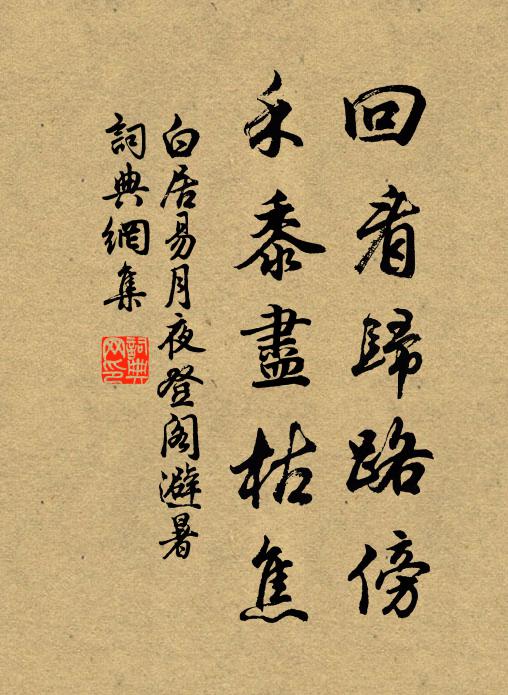 回看歸路傍
禾黍盡枯焦
白居易月夜登閣避暑
詞典網集
詞典
网印